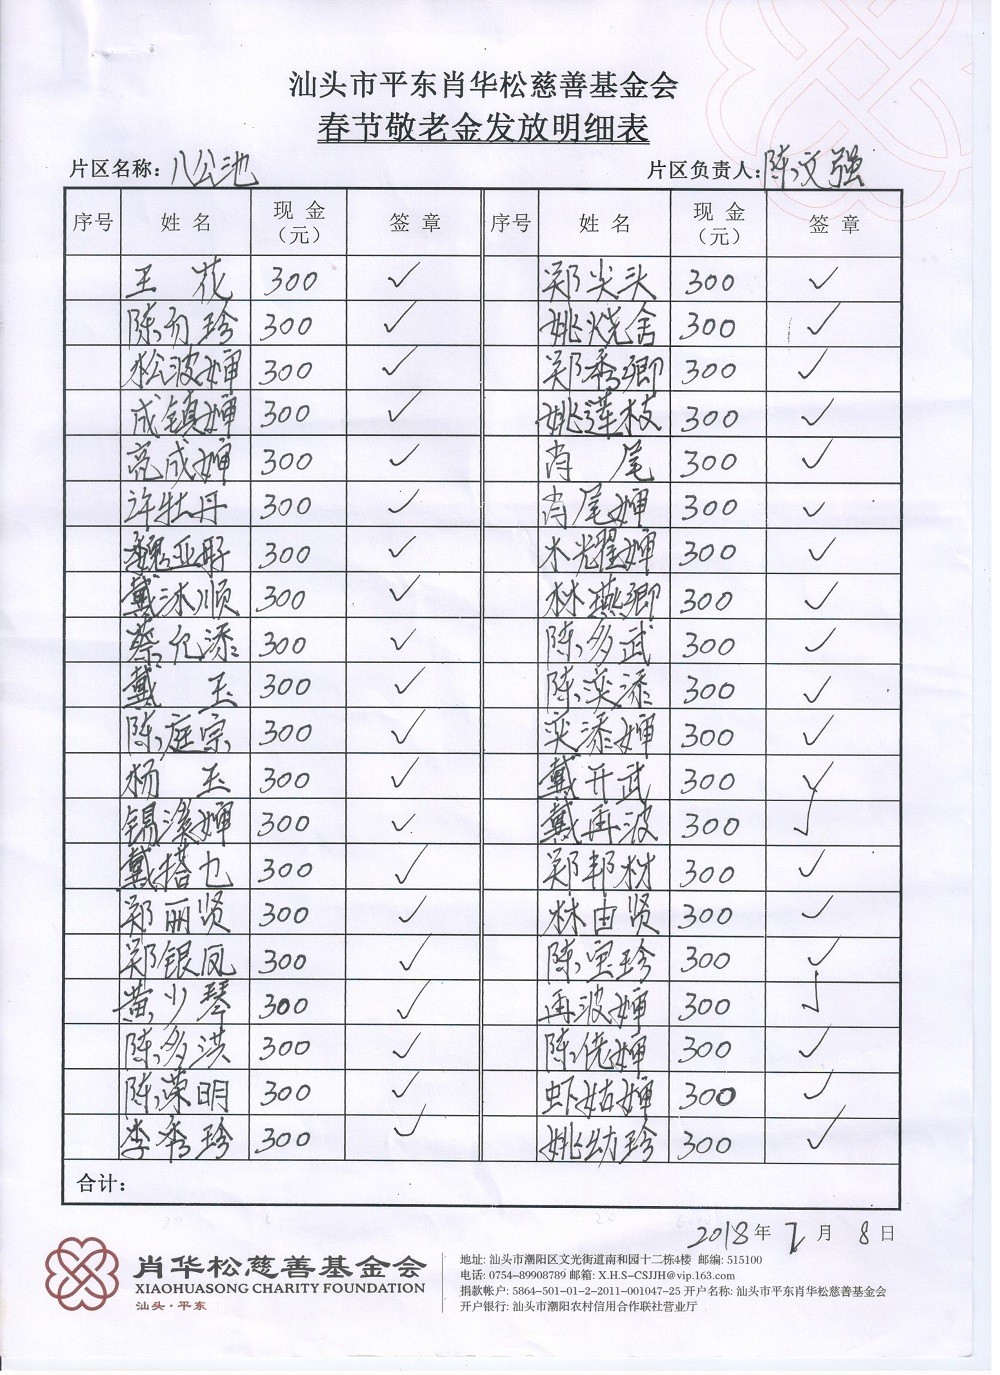 汕头市平东肖华松慈善基金会
春节敬老金发放明细表
片区名称：八公池 片区负责人：陈文强
序号 姓名 现金（元） 签章 序号 姓名 现金（元） 签章
王花 300 ✓ 郑尖头 300 ✓
陈勿珍 300 ✓ 姚烧舍 300 ✓
松波婶 300 ✓ 郑秀卿 300 ✓
成镇婶 300 ✓ 姚莲枝 300 ✓
亮成婶 300 ✓ 肖尾 300 ✓
许牡丹 300 ✓ 肖尾婶 300 ✓
魏亚 300 ✓ 木耀婶 300 ✓
戴沐顺 300 ✓ 林燕卿 300 ✓
蔡允添 300 ✓ 陈多武 300 ✓
戴玉 300 ✓ 陈奕添 300 ✓
陈庭宗 300 ✓ 奕添婶 300 ✓
杨玉 300 ✓ 戴开武 300 ✓
锡溪婶 300 ✓ 戴再波 300 ✓
戴搭乜 300 ✓ 郑邦材 300 ✓
郑丽贤 300 ✓ 林由贤 300 ✓
郑银凤 300 ✓ 陈宝珍 300 ✓
黄少琴 300 ✓ 再波婶 300 ✓
陈多洪 300 ✓ 陈佬婶 300 ✓
陈荣明 300 ✓ 虾姑婶 300 ✓
李秀珍 300 ✓ 姚幼珍 300 ✓
合计：
2018年2月8日
肖华松慈善基金会
XIAOHUASONG CHARITY FOUNDATION
汕头·平东
地址: 汕头市潮阳区文光街道南和园十二栋4楼 邮编: 515100
电话: 0754-89908789 邮箱: X.H.S-CSJJH@vip.163.com
捐款帐户: 5864-501-01-2-2011-001047-25 开户名称: 汕头市平东肖华松慈善基金会
开户银行: 汕头市潮阳农村信用合作联社营业厅